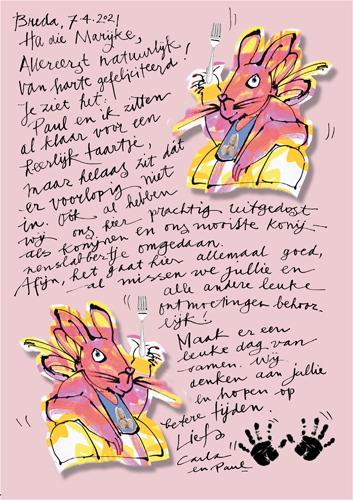 Breda, 7-4-2021
Ha die Marijke,
Allereerst natuurlijk
van harte gefeliciteerd!
Je ziet het:
Paul en ik zitten
al klaar voor een
heerlijk taartje,
maar helaas zit dat
er voorlopig niet
in. Ook al hebben
wij ons hier prachtig uitgedost
als konijnen en ons mooiste konij-
nenslabbetje omgedaan.
Afijn, het gaat hier allemaal goed,
al missen we jullie en
alle andere leuke
ontmoetingen behoor-
lijk!
Maak er een
leuke dag van
samen. Wij
denken aan jullie
en hopen op
betere tijden.
Liefs
Carla
en Paul